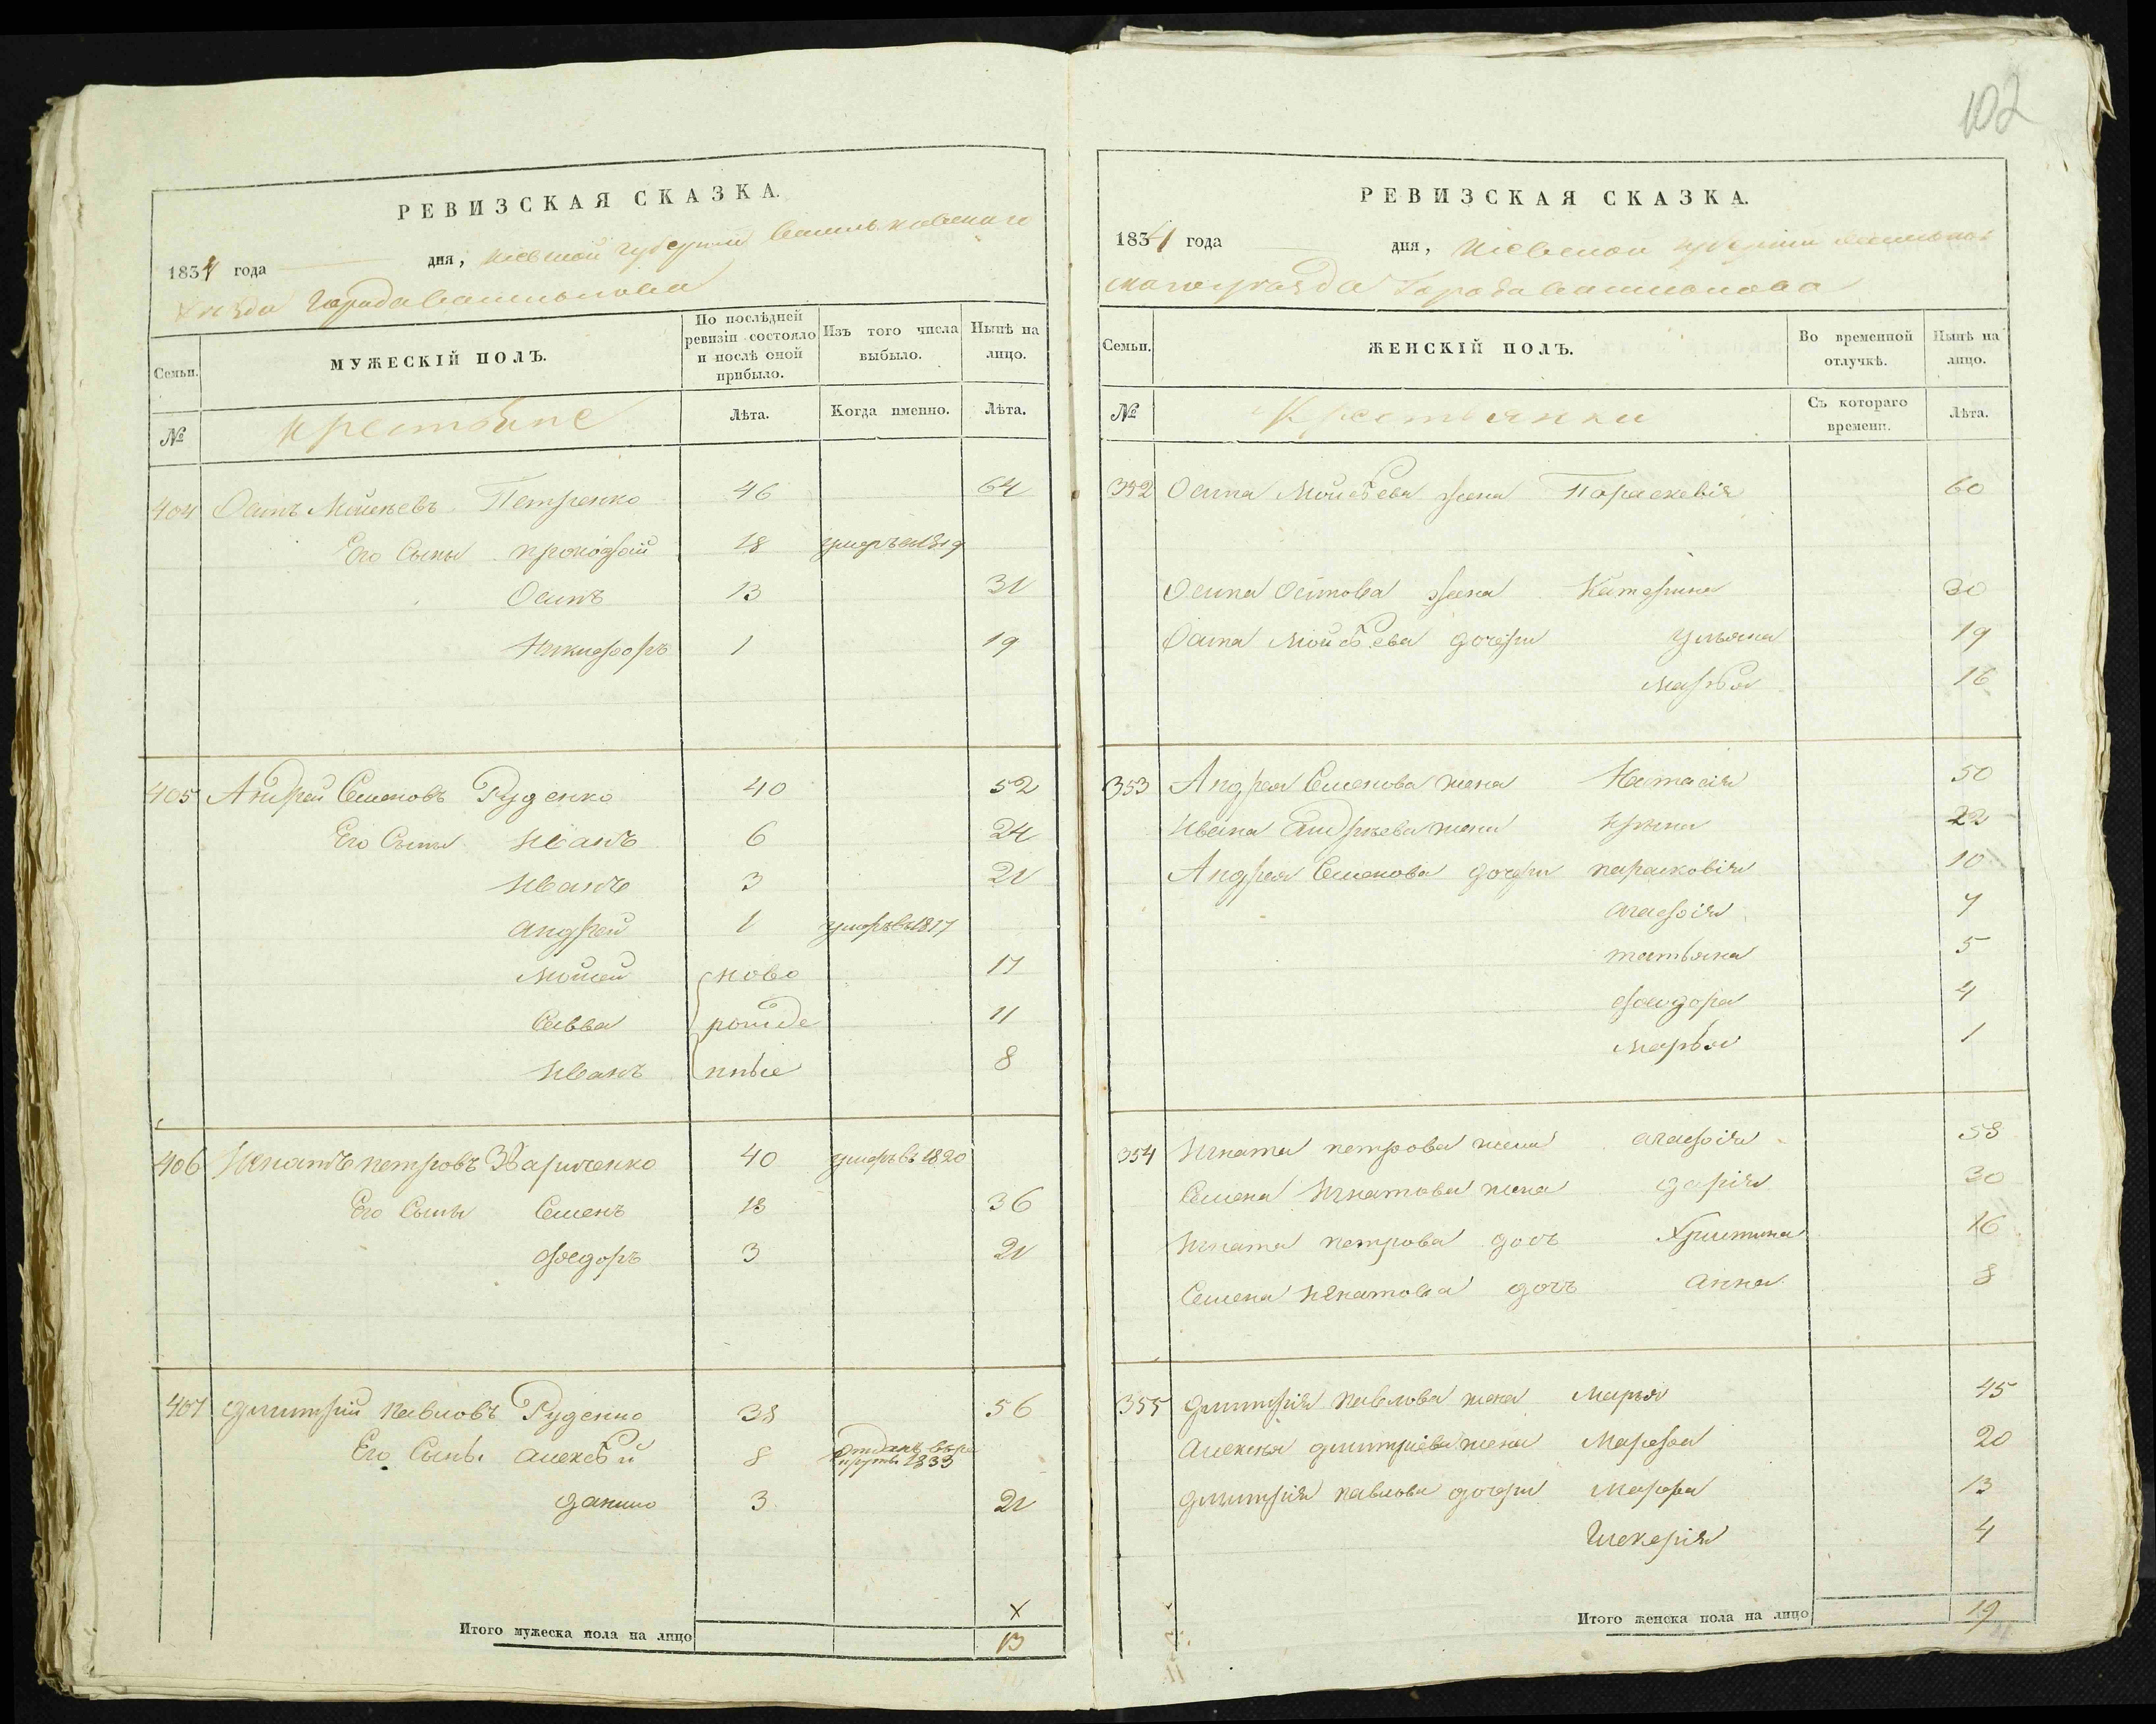 РЕВИЗСКАЯ СКАЗКА.
1834 года дня, Кіевской губерніи Васильковскаго
уѣзда Города Василькова
Семьи. МУЖЕСКІЙ ПОЛЪ. По послѣдней ревизіи состояло и послѣ оной прибыло. Изъ того числа выбыло. Нынѣ на лицо.
№ Крестьяне Лѣта. Когда именно. Лѣта.
404 Осипъ Мойсѣевъ Петренко 46 64
Его Сыны прокофий 18 умеръ въ 1819
Осипъ 13 31
Никифоръ 1 19
405 Андрей Семеновъ Руденко 40 52
Его Сыны Иванъ 6 24
Иванъ 3 21
андрей 1 умеръ въ 1817
Мойсей ново 17
Савва рожде 11
Иванъ нные 8
406 Игнатъ петровъ Звариченко 40 умеръ въ 1820
Его Сыны Семенъ 18 36
федоръ 3 21
407 дмитрій павловъ Руденко 38 56
Его Сынъ алексѣй 8 Отданъ въ ре
круты 1833
данило 3 21
Итого мужеска пола на лицо 13
102
РЕВИЗСКАЯ СКАЗКА.
1834 года дня, Кіевской губерніи Васильков
скаго уѣзда Города Василькова
Семьи. ЖЕНСКІЙ ПОЛЪ. Во временной отлучкѣ. Нынѣ на лицо.
№ Крестьянки Съ котораго времени. Лѣта.
352 Осипа Мойсѣева жена Параскевія 60
Осипа Осипова жена Катерина 30
Осипа Мойсѣева дочери Ульяна 19
Марья 16
353 Андрея Семенова жена Настасія 50
Ивана Андрѣева жена Ирина 22
Андрея Семенова дочери парасковія 10
агафія 7
татьяна 5
феодора 4
Марья 1
354 Игната петрова жена агафія 58
Семена Игнатова жена дарія 30
Игната петрова дочь Христина 16
Семена Игнатова дочь анна 8
355 дмитрія павлова жена Марья 45
алексѣя дмитріева жена Марфа 20
дмитрія павлова дочери Марфа 13
Гликерія 4
Итого женска пола на лицо 19